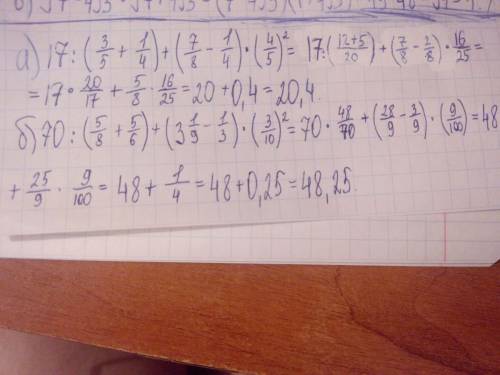 а) 17 : (3/5 + 1/4) + (7/8 - 1/4) · (4/5)² = 17 : ((12+5)/20) + (7/8 - 2/8) · 16/25 =
= 17 · 20/17 + 5/8 · 16/25 = 20 + 0,4 = 20,4.
б) 70 : (5/8 + 5/6) + (3 1/9 - 1/3) · (3/10)² = 70 · 48/70 + (28/9 - 3/9) · (9/100) = 48
+ 25/9 · 9/100 = 48 + 1/4 = 48 + 0,25 = 48,25.